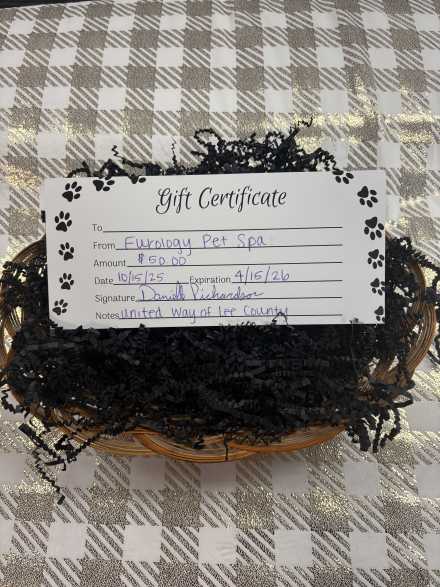 Gift Certificate
To
From Furology Pet Spa
Amount $50.00
Date 10/15/25 Expiration 4/15/26
Signature Danielle Richardson
Notes United Way of Lee County